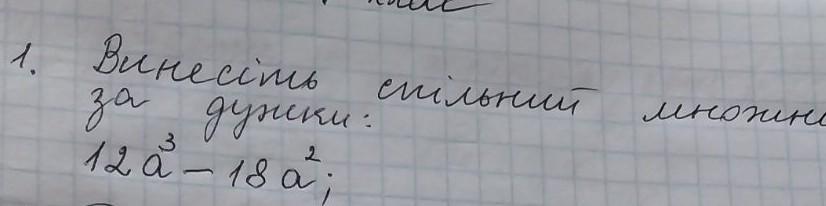 1. Винесіть спільний множни
за дужки:
12a³ – 18a²;